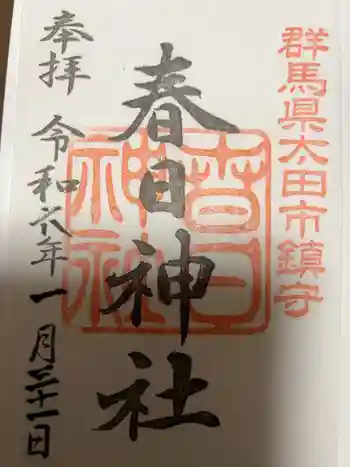 群馬県太田市鎮守
春日神社
春日
神社
奉拝
令和六年一月三十一日